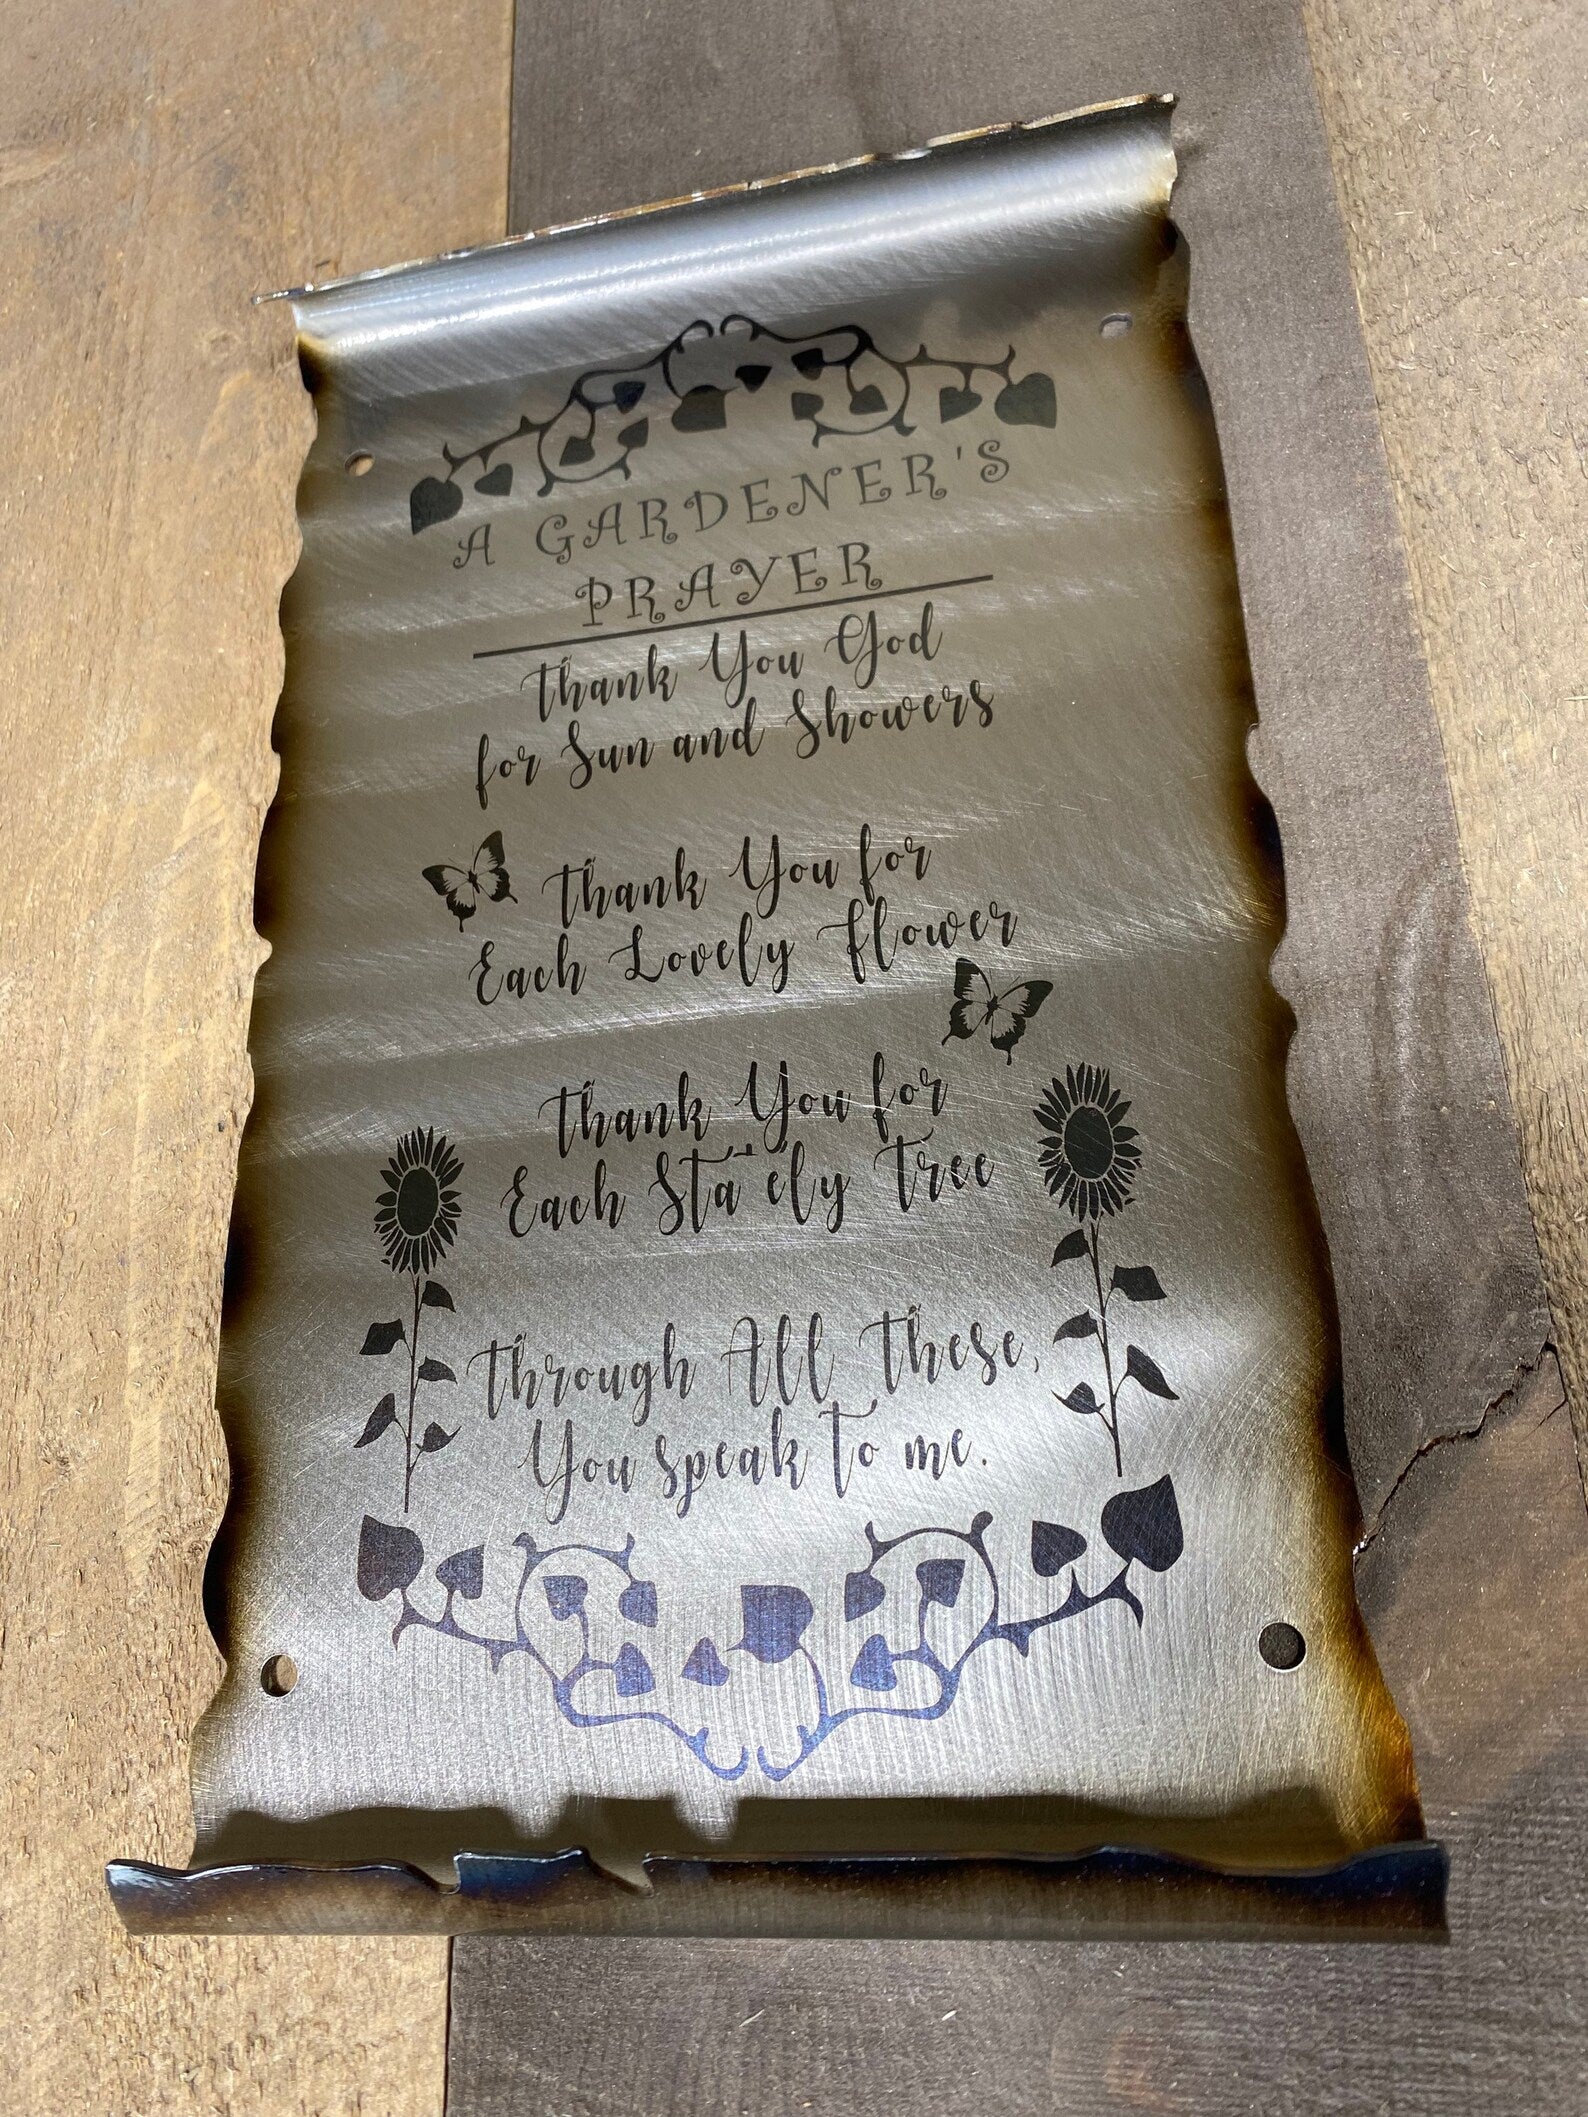 A GARDENER'S
PRAYER
Thank You God
for Sun and Showers
Thank You for
Each Lovely Flower
Thank You for
Each Stately Tree
Through All These,
You speak to me.